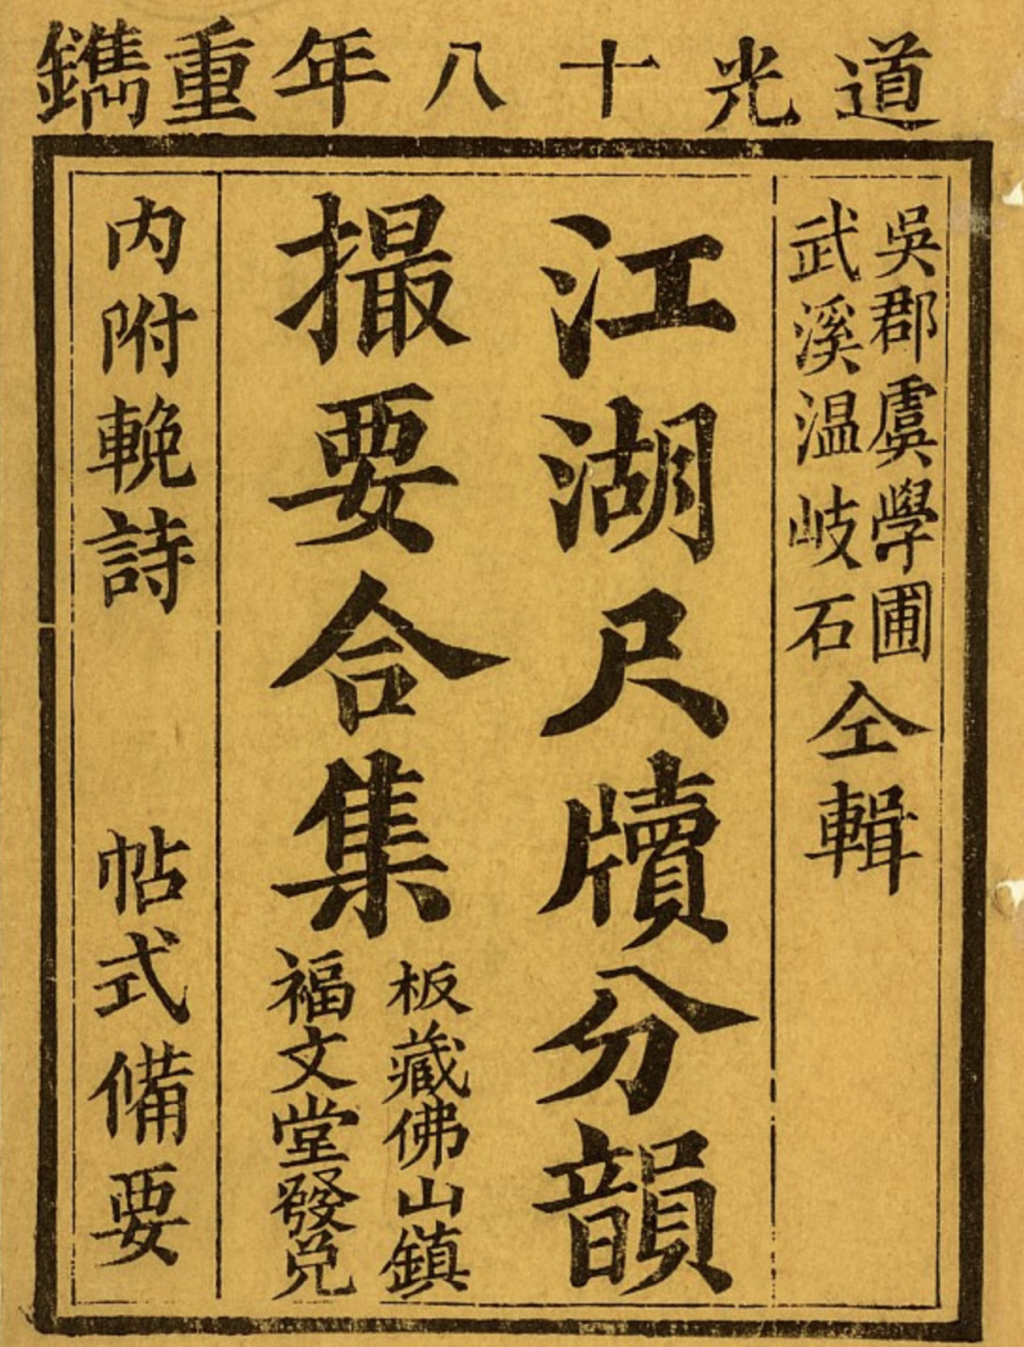 道光十八年重鐫
吳郡虞學圃
武溪温岐石
仝輯
江湖尺牘分韻
撮要合集
板藏佛山鎮
福文堂發兑
内附輓詩　帖式備要